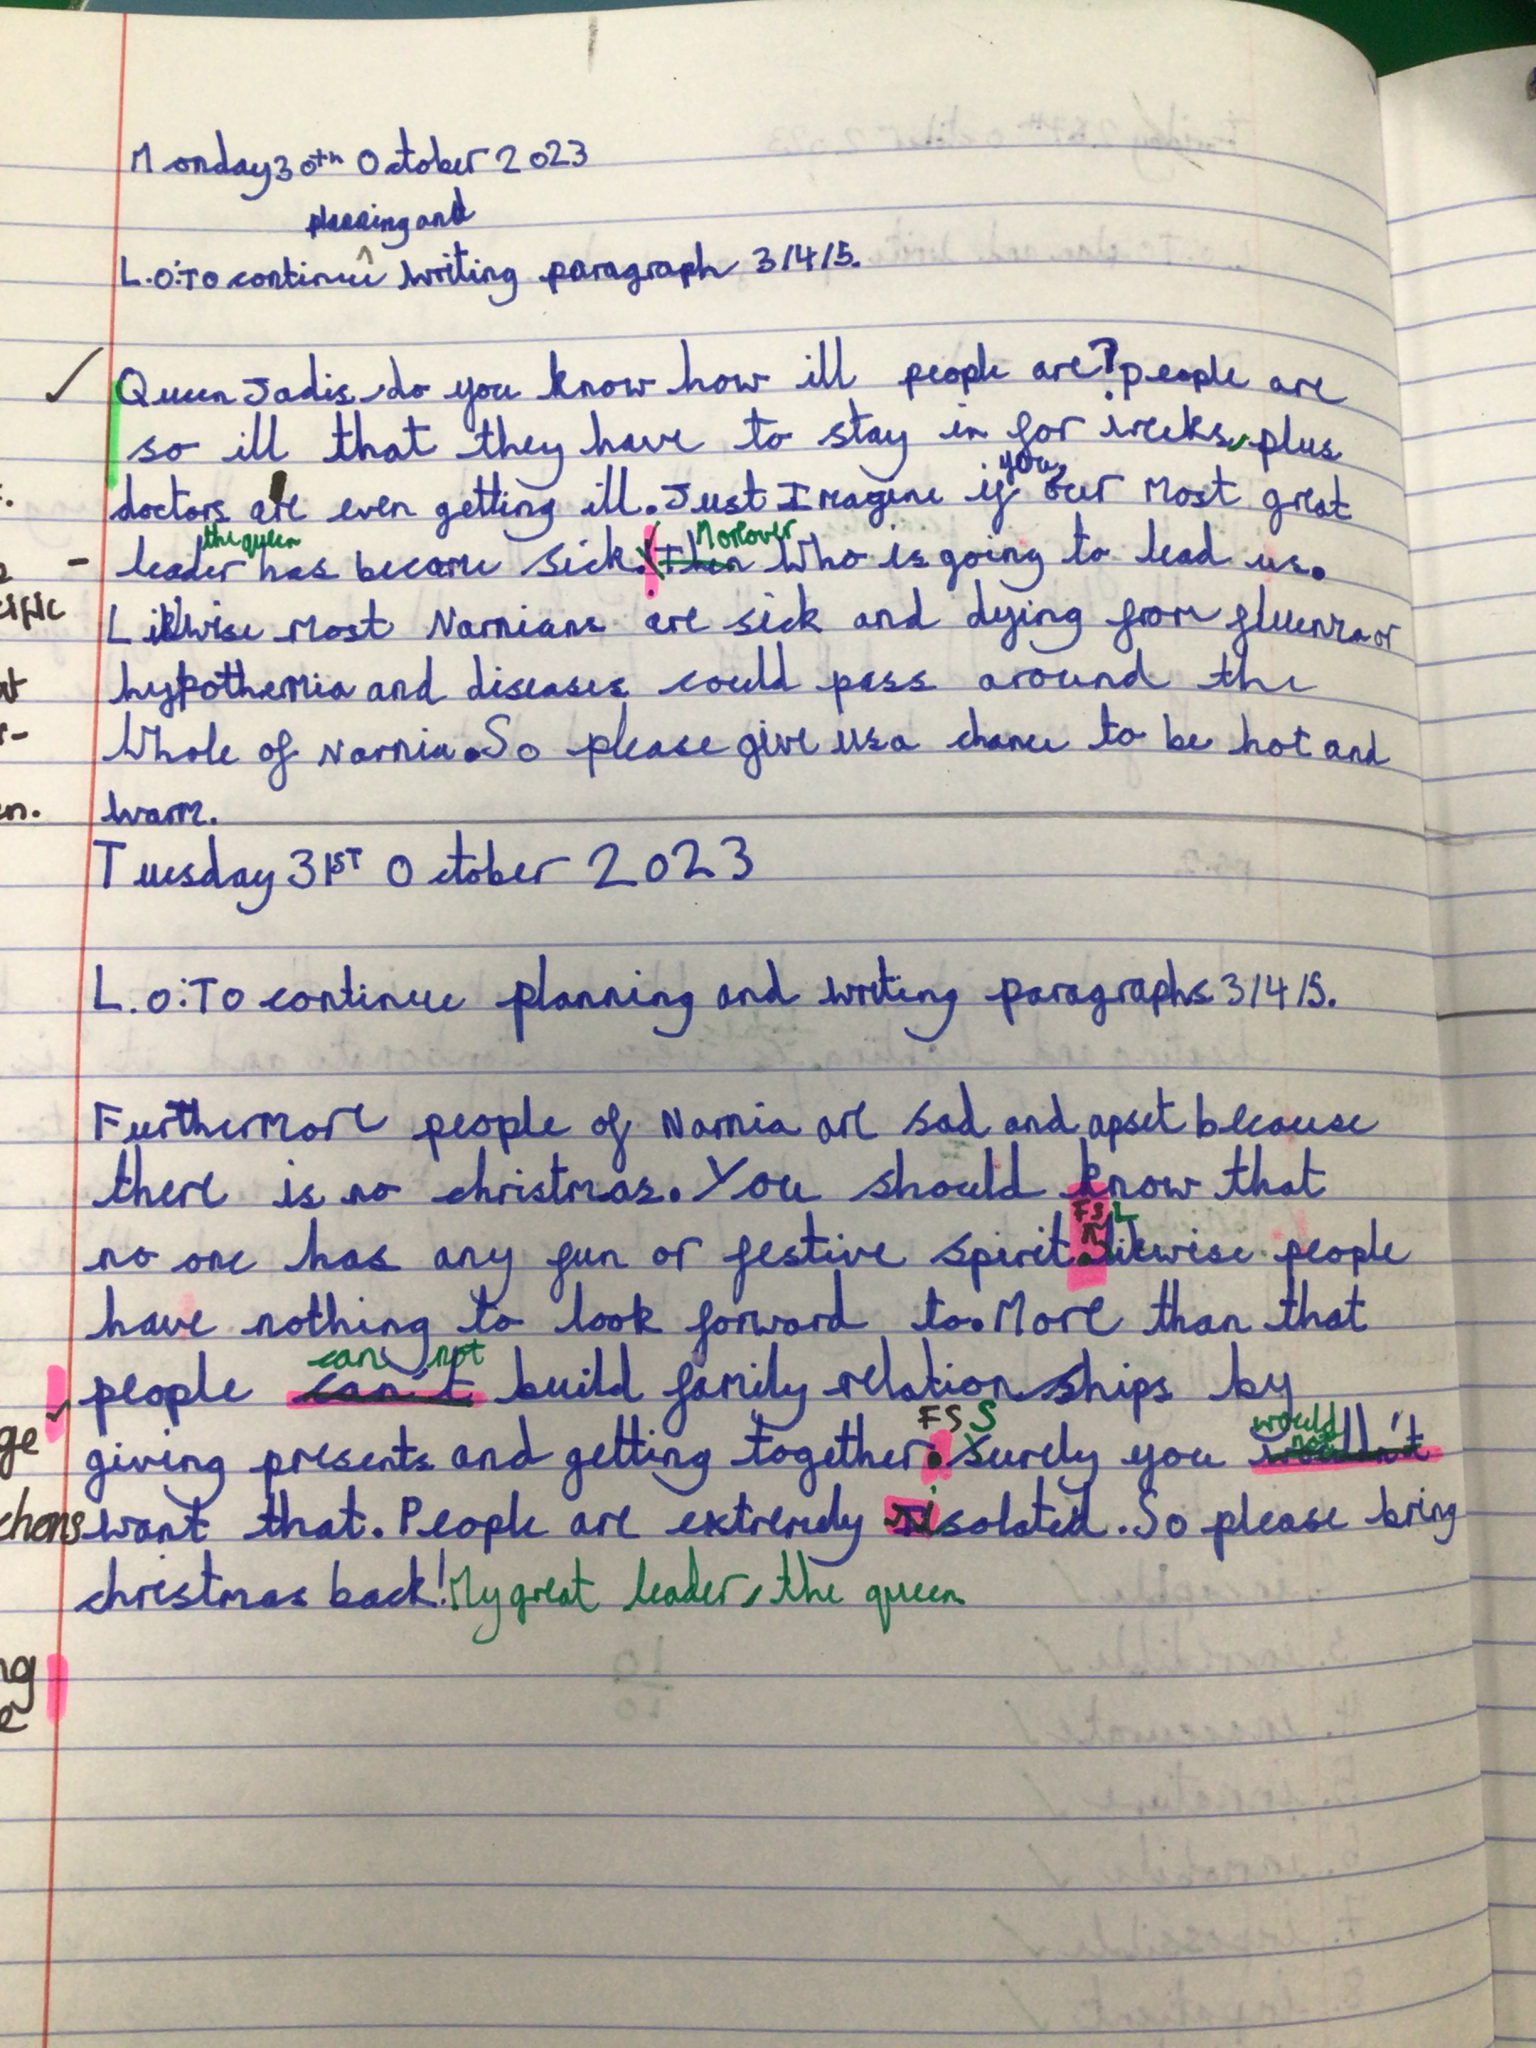 Monday 30th October 2023
planning and
L.O: To continue ^ writing paragraph 3/4/5.
Queen Jadis, do you know how ill people are? people are
so ill that they have to stay in for weeks, plus
doctors are even getting ill. Just Imagine if you, our most great
leader the queen has become sick. then Moreover Who is going to lead us.
Likwise most Narnians are sick and dying from fluenza or
hypothermia and diseases could pass around the
whole of Narnia. So please give us a chance to be hot and
warm.
Tuesday 31ST October 2023
L.O: To continue planning and writing paragraphs 3/4/5.
Furthermore people of Narnia are sad and apset because
there is no christmas. You should know that
FS L
no one has any fun or festive spirit. likewise people
have nothing to look forward to. More than that
can not
people can't build family relation ships by
FS S would not
giving presents and getting together. Surely you wouldn't
want that. People are extremely isolated. So please bring
christmas back! My great leader, the queen